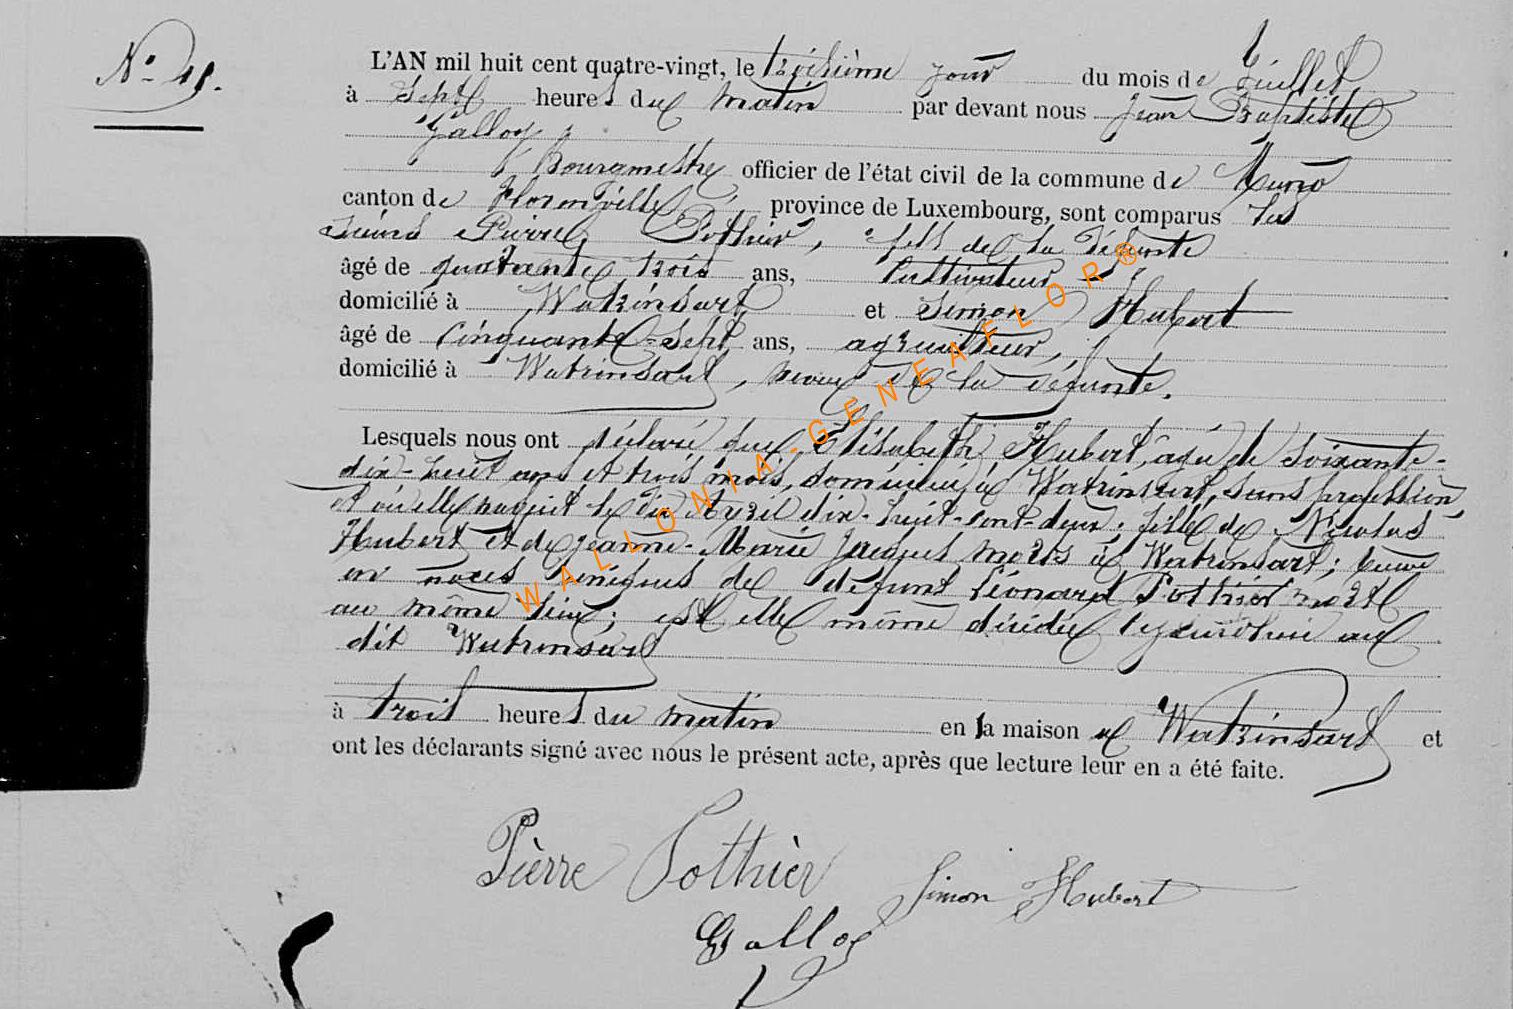 N° 19.
L'AN mil huit cent quatre-vingt, le troisième jour du mois de Juillet
à sept heures du matin par devant nous Jean Baptiste
Galloy,
Bourgmestre officier de l'état civil de la commune de Muno
canton de Florenville, province de Luxembourg, sont comparus les
sieurs Pierre Pothier, fils de la défunte
âgé de quarante trois ans, cultivateur
domicilié à Watrinsart et Simon Hubert
âgé de cinquante-sept ans, agriculteur,
domicilié à Watrinsart, neveu de la défunte.
Lesquels nous ont déclaré que Elisabeth Hubert, âgée de soixante-
dix-huit ans et trois mois, domiciliée à Watrinsart, sans profession,
et où elle naquit le dix Avril dix-huit-cent-deux; fille de Nicolas
Hubert et de Jeanne-Marie Jacques morts à Watrinsart; veuve
en noces de défunt Léonard Pothier mort
au même lieu; est elle même décédée au
dit Watrinsart
à trois heures du matin en la maison à Watrinsart et
ont les déclarants signé avec nous le présent acte, après que lecture leur en a été faite.
Pièrre Pothièr
Simon Hubert
Galloy
WALLONIA-GENEAFLOR®